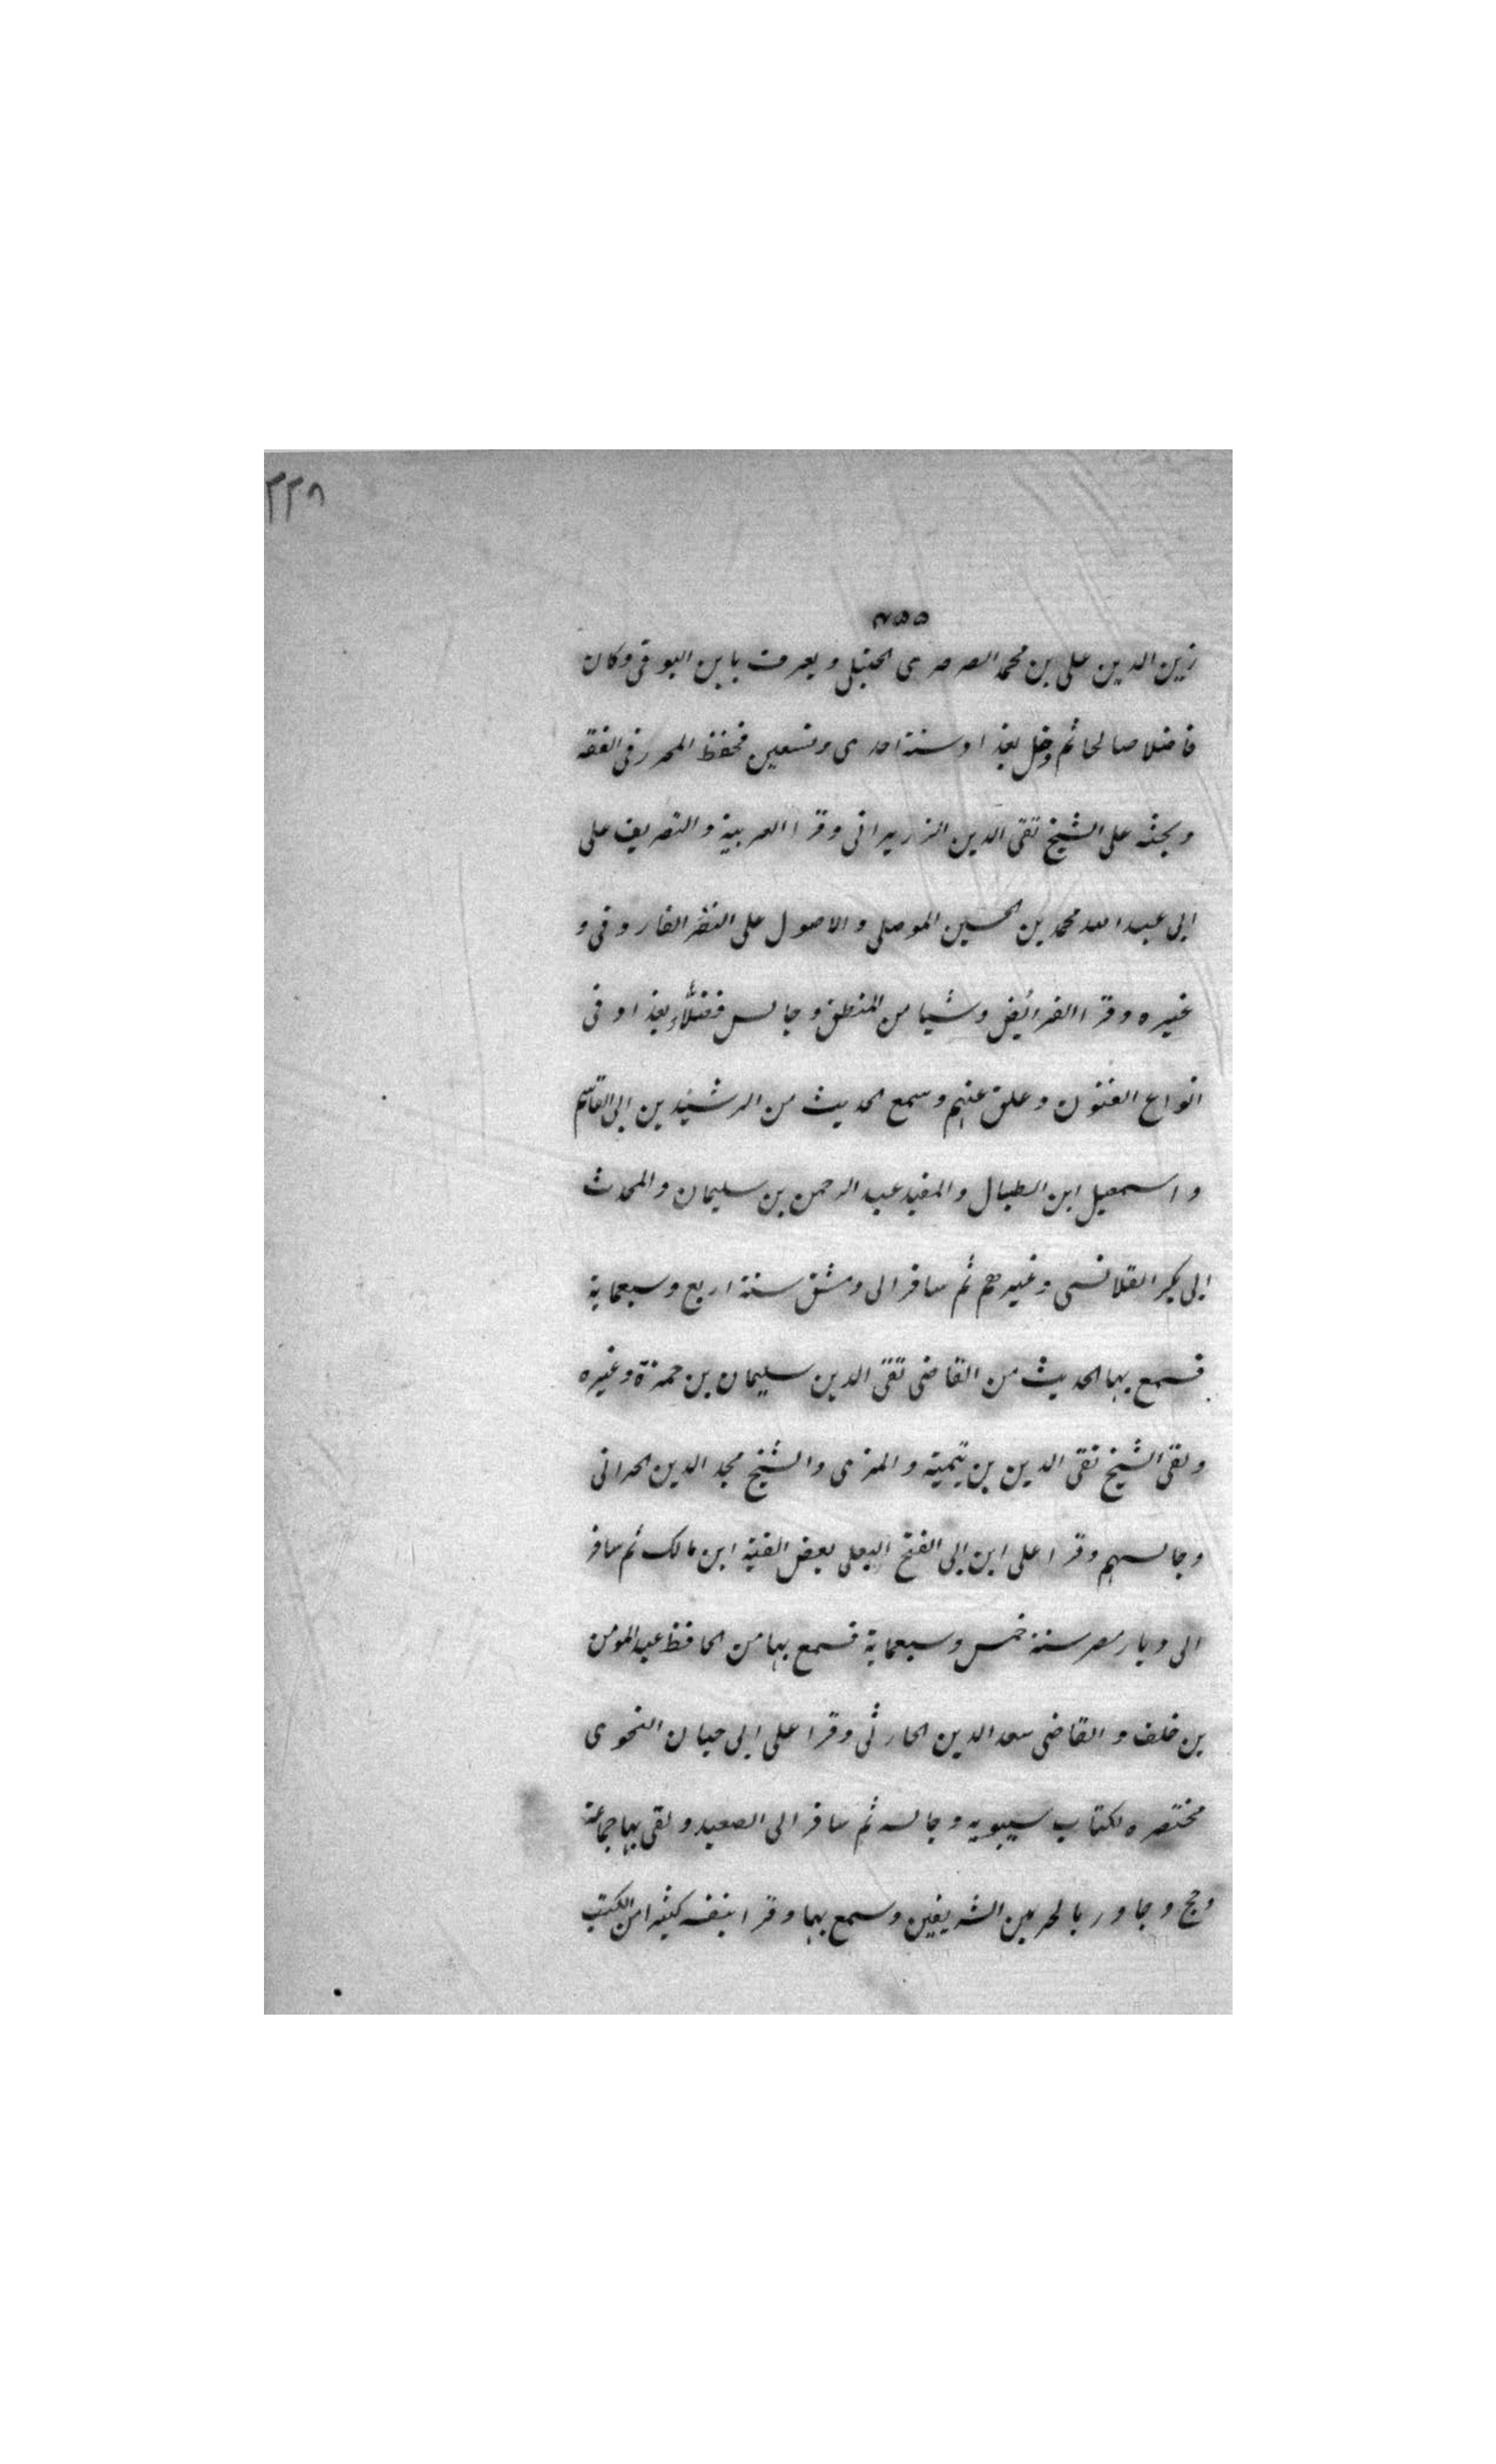 ٢٢٨
٤٥٥
زين الدين على بن محمد الصرصرى الحنبلى ويعرف بابن البوقى وكان
فاضلا صالحا ثم دخل بغداد سنة احدى وتسعين فحفظ المحرر فى الفقه
وبحثه على الشيخ تقى الدين الزريرانى وقرا العربية والتصريف على
ابى عبد الله محمد بن الحسين الموصلى والاصول على النضر الفاروقى و
غيره وقرا الفرائض وشيا من المنطق وجالس فضلاء بغداد فى
انواع الفنون وعلق عنهم وسمع الحديث من الرشيد بن ابى القاسم
واسمعيل ابن الطبال والمفيد عبد الرحمن بن سليمان والمحدث
ابى بكر القلانسى وغيرهم ثم سافر الى دمشق سنة اربع وسبعماية
فسمع بها الحديث من القاضى تقى الدين سليمان بن حمزة وغيره
ولقى الشيخ تقى الدين بن تيمية والمزى والشيخ مجد الدين الحرانى
وجالسهم وقرا على ابن ابى الفتح البعلى بعض الفية ابن مالك ثم سافر
الى ديار مصر سنة خمس وسبعماية فسمع بها من الحافظ عبد المومن
بن خلف والقاضى سعد الدين الحارثى وقرا على ابى حيان النحوى
مختصره لكتاب سيبويه وجالسه ثم سافر الى الصعيد ولقى بها جماعة
وحج وجاور بالحرمين الشريفين وسمع بهما وقرا بنفسه كثيرا من الكتب